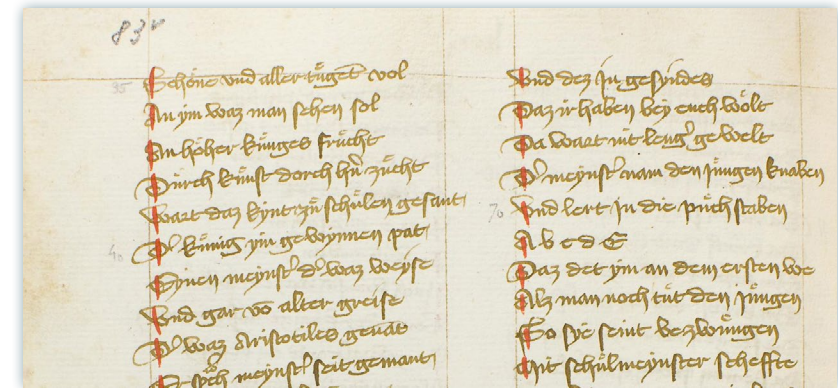 83r
35
Schöne vnd aller túgent vol
An ym waz man sehen sol
An hoher kúniges frúcht
Dúrch kúnst dorch hr̄ zúcht
Wart daz kynt zú schúlen gesant
40
Dr kúnig ym gewynnen pat
Eynen meynstr dr waz weyse
Vnd gar vō alter greise
Dr waz Aristotiles genāt
meynstr seit gemant
Vnd dez in gesyndes
Daz ir haben bey euch wölt
Da wart nit lengr gewelt
Dr meynstr nam den júngen knaben
70
Vnd lert in die púchstaben
A b c d E
Daz det ym an dem ersten we
Alz man noch tút den júngen
So sye seint bezwúngen
Mit schúlmeynster scheffte